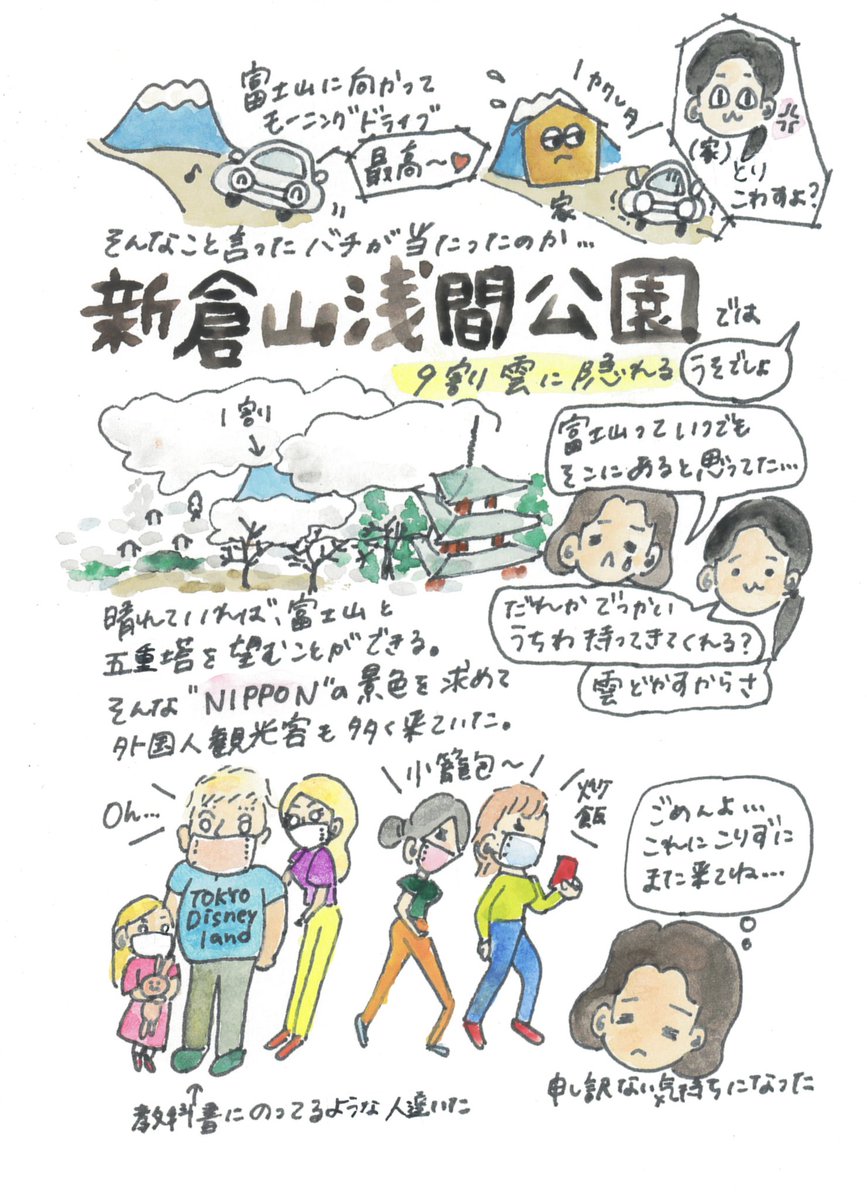 富士山に向かって
モーニングドライブ
最高〜♥
♪
カクレタ
家
(家)とり
こわすよ?
そんなこと言ったバチが当たったのか…
新倉山浅間公園では
9割り雲に隠れる
うそでしょ
1割り
富士山っていつでも
そこにあると思ってた…
だれかでっかい
うちわ持ってきてくれる?
雲どかすからさ
晴れていれば、富士山と
五重塔を望むことができる。
そんな"NIPPON"の景色を求めて
外国人観光客も多く来ていた。
Oh…
小籠包〜
炒飯
TOKYO
Disney
land
ごめんよ…
これにこりずに
また来てね…
教科書にのってるような人達いた
申し訳ない気持ちになった